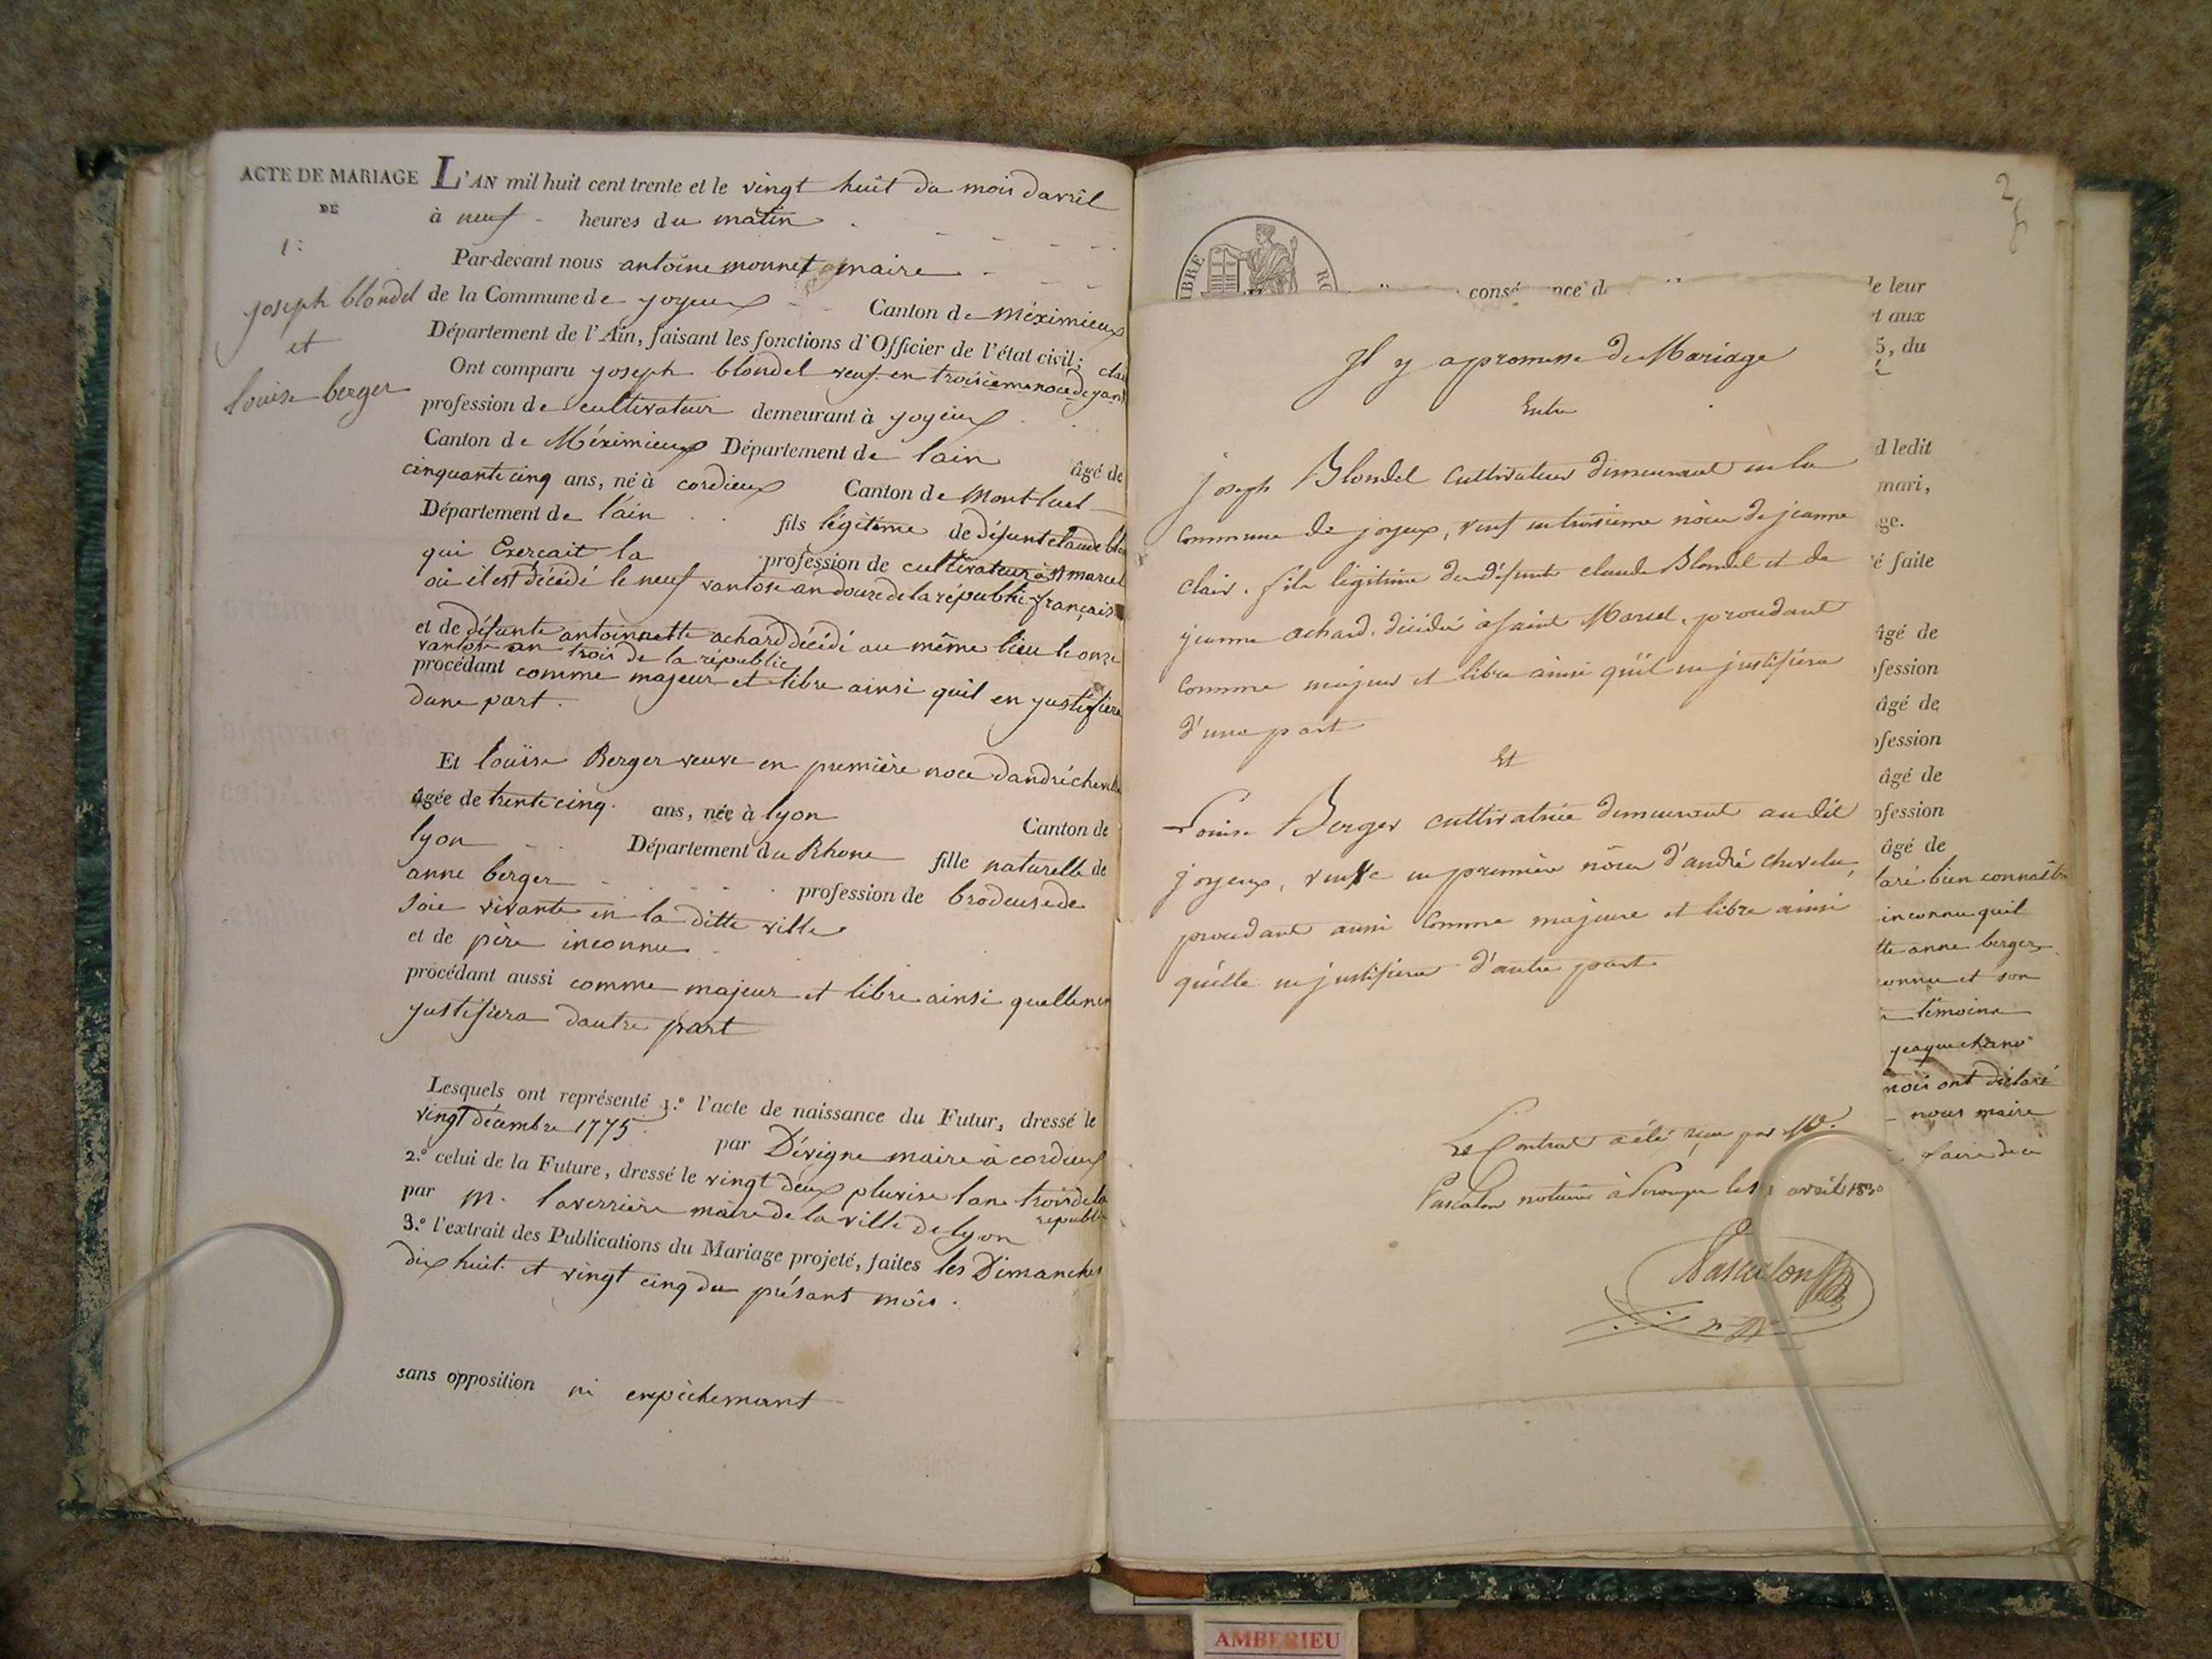 ACTE DE MARIAGE
DE
1:
joseph blondel
et
louise berger
L'AN mil huit cent trente et le vingt huit du mois davril
à neuf - heures du matin
Par-devant nous antoine monnet maire
de la Commune de joyeux Canton de Méximieux
Département de l'Ain, faisant les fonctions d'Officier de l'état civil;
Ont comparu joseph blondel veuf en troisième noce de jane clai
profession de cultivateur demeurant à joyeux
Canton de Méximieux Département de lain âgé de
cinquante cinq ans, né à cordieux Canton de Montluel
Département de l'ain fils légitime de défunt claude blon
qui Exercait la profession de cultivateur à st marcel
où il est décédé le neuf vantose an douze de la républic français
et de défunte antoinnette achard décédé au même lieu le onze
vantose an trois de la républic
procédant comme majeur et libre ainsi quil en justifiera
dune part.
Et louise Berger veuve en première noce dandré chevelu
âgée de trente cinq. ans, née à lyon Canton de
lyon Département du Rhone fille naturelle de
anne berger profession de brodeuse de
soie vivante en la ditte ville
et de père inconnu
procédant aussi comme majeur et libre ainsi quelle en
justifiera dautre part
Lesquels ont représenté 1.º l'acte de naissance du Futur, dressé le
vingt décembre 1775 par Dévigne maire à cordieux
2.º celui de la Future, dressé le vingt deux pluvise lane trois de la
républi
par m. laverrière maire de la ville de lyon
3.º l'extrait des Publications du Mariage projeté, faites les Dimanches
dix huit et vingt cinq du présant mois.
sans opposition ni enpêchemant
2
BRE RO
consé nce d le leur
t aux
5, du
d ledit
mari,
ge.
é faite
âgé de
ofession
âgé de
ofession
âgé de
ofession
âgé de
laré bien connaître
inconnu quil
tte anne berger
connu et son
témoins
jeaque chane
mois ont déclaré
nous maire
faire de ce
Il y a promesse de Mariage
Entre
joseph Blondel cultivateur demeurant en la
Commune de joyeux, veuf en troisieme nôces de jeanne
Clair, fils légitime de défunts claude Blondel et de
jeanne achard, décédés à saint Marcel, procedant
Comme majeur et libre ainsi qu'il en justifiera
d'une part
Et
Louise Berger cultivatrice demeurant audit
joyeux, veuve en première nôces d'andré chevelu,
procedant aussi Comme majeure et libre ainsi
qu'elle en justifiera d'autre part
Le Contrat a été reçu par Me.
Pascalon notaire à Perouges les avril 1830
Pascalon
AMBERIEU